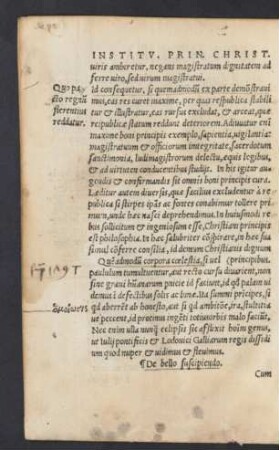 INSTITV. PRIN. CHRIST.
uerit ambiretur, negans magistratum dignitatem ad
ferre uiro, sed uirum magistratui.
Quo pa
cto regnũ
florentius
reddatur.
Id consequetur, si quemadmodũ ex parte demõstrauí
mus, eas res curet maxime, per quas respublica stabili
tur & illustratur, eas rursus excludat, & arceat, quæ
reipublicæ statum reddunt deteriorem. Adiuuatur eni
maxime boni principis exemplo, sapientia, uigilantia:
magistratuum & officiorum integritate, sacerdotum
sanctimonia, ludimagistrorum delectu, equis legibus,
& ad uirtutem conducentibus studijs. In his igitur auge
andis & confirmandis sit omnis boni principis cura.
Læditur autem diuersis, quæ facilius excludentur à re
publica si stirpes ipsas ac fontes conabimur tollere pri
mum, unde hæc nasci deprehendimus. In huiusmodi re
bus sollicitum & ingeniosum esse, Christiani principis
est philosophia. In hæc salubriter cõgitare, in hæc ius
simul cõferre consilia, id demum Christianis dignum.
Quẽadmodũ corpora cœlestia, si uel
paululum tumultuentur, aut recto cursu diuertant, non
sine graui hũanarum pnicie id faciunt, id qd palam ui
demus ĩ defectibus solis ac lunæ. Ita summi prĩcipes, si
qd aberrẽt ab honesto, aut si qd ambitiõe, ira, stultitia
ue peccent, id protinus ingẽti totius orbis malo faciũt,
Nec enim ulla unq̃ eclipsis sic afflixit hoĩm genus,
ut Iulij pontificis & Lodouici Galliarum regis dissidi
um quod nuper & uidimus & fleuimus.
¶ De bello suscipiendo.
Cum